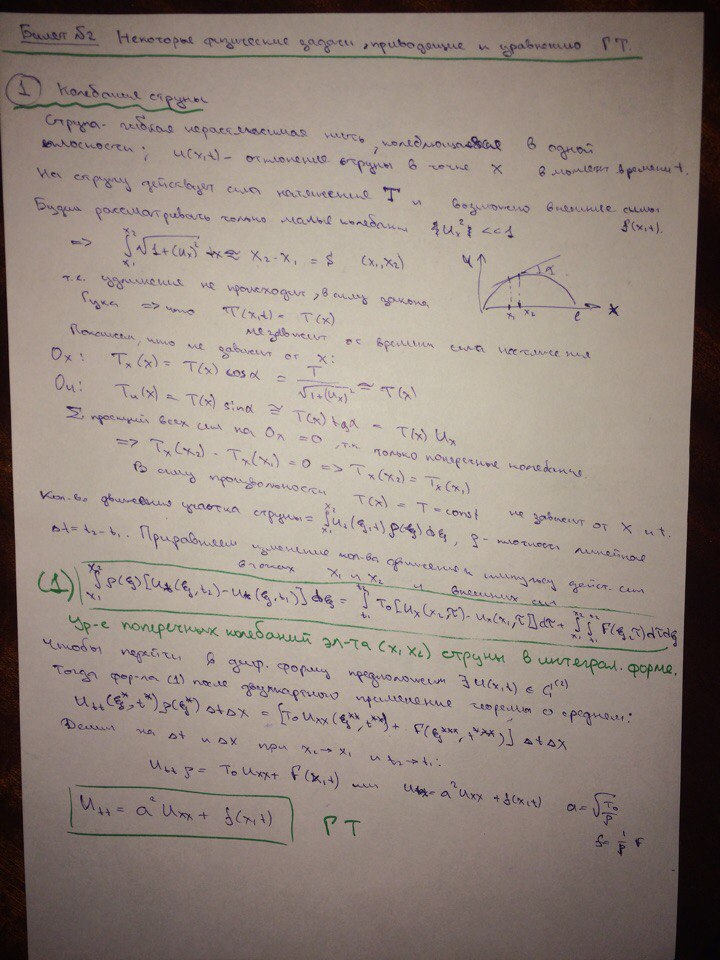 Билет №2 Некоторые физические задачи, приводящие к уравнению ГТ.
① Колебания струны
Струна - гибкая нерастяжимая нить, колеблющаяся в одной
плоскости; u(x,t) - отклонение струны в точке x в момент времени t.
На струну действует сила натяжения T и возможно внешние силы
f(x,t).
Будем рассматривать только малые колебания {Ux²} << 1
=> ∫_{x₁}^{x₂} √(1+(Ux)²) dx ≈ x₂-x₁ = S (x₁,x₂)
U α x₁ x₂ l x
т.е. удлинения не происходит, в силу закона
Гука => что T(x,t) = T(x)
независит от времени сила натяжения
Покажем, что не зависит от x:
Ox: Tx(x) = T(x) cosα = T/√(1+(Ux)²) ≅ T(x)
Ou: Tu(x) = T(x) sinα ≅ T(x) tgα = T(x) Ux
Σ проекций всех сил на Ox = 0, т.к. только поперечные колебания.
=> Tx(x₂) - Tx(x₁) = 0 => Tx(x₂) = Tx(x₁)
В силу произвольности T(x) = T = const не зависит от x и t.
Кол-во движения участка струны = ∫_{x₁}^{x₂} Ut(ξ,t) ρ(ξ) dξ, ρ - плотность линейная
Δt = t₂-t₁. Приравняем изменение кол-ва движения и импульсу действ. сил
в точках x₁ и x₂ и внешних сил
(1) ∫_{x₁}^{x₂} ρ(ξ)[Ut(ξ,t₂) - Ut(ξ,t₁)]dξ = ∫_{t₁}^{t₂} T₀[Ux(x₂,τ) - Ux(x₁,τ)]dτ + ∫_{x₁}^{x₂} ∫ F(ξ,τ)dτdξ
Ур-е поперечных колебаний эл-та (x₁,x₂) струны в интеграл. форме.
Чтобы перейти в диф. форму предположим ∃ U(x,t) ∈ C⁽²⁾
Тогда фор-ла (1) после двухкратного применение теоремы о среднем:
Utt(ξ*,t*)ρ(ξ*) ΔtΔx = [T₀Uxx(ξ**,t**) + F(ξ***,t***)] ΔtΔx
Делим на Δt и Δx при x₂→x₁ и t₂→t₁:
Utt ρ = T₀Uxx + F(x,t) или Utt = a²Uxx + f(x,t) a = √(T₀/ρ)
f = 1/ρ F
Utt = a² Uxx + f(x,t) ГТ